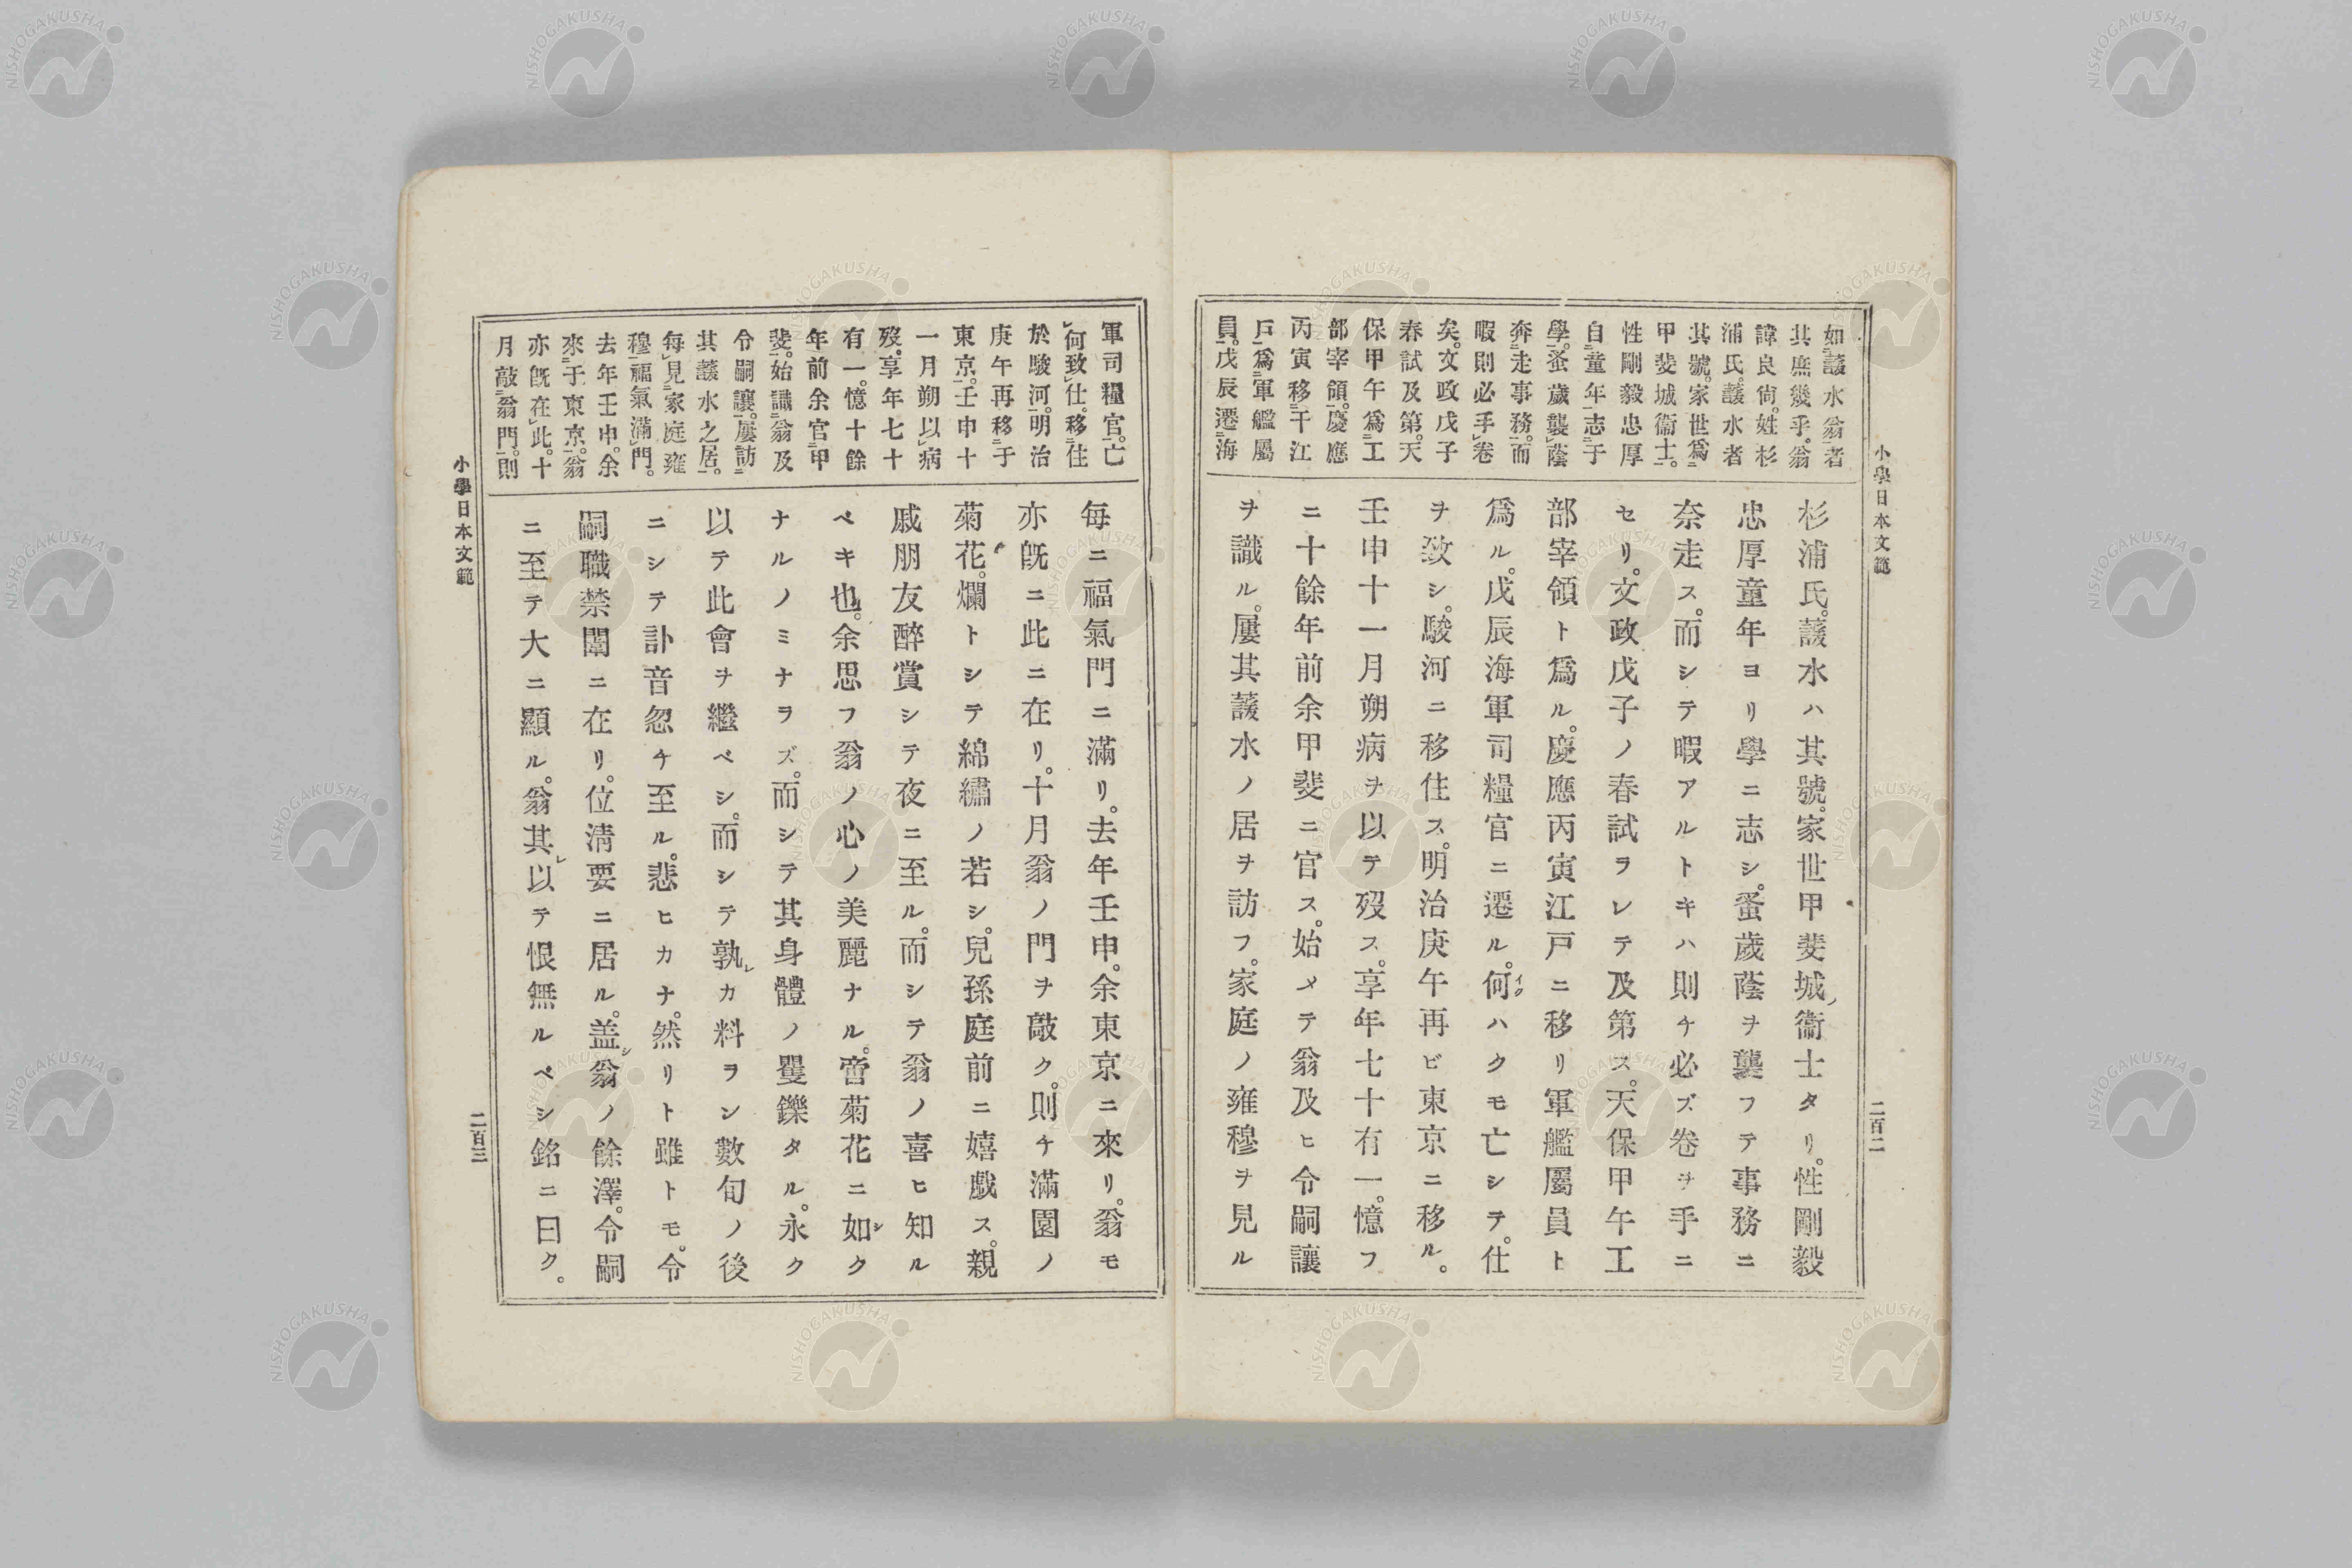 小學日本文範
二百二
如護水翁者
其庶幾乎。翁
諱良尙。姓杉
浦氏。護水者
其號。家世爲
甲斐城衞士。
性剛毅忠厚
自童年志于
學。蚤歲襲蔭
奔走事務。而
暇則必手卷
矣。文政戊子
春試及第。天
保甲午爲工
部宰領。慶應
丙寅移于江
戶爲軍艦屬
員。戊辰遷海
杉浦氏。護水ハ其號。家世甲斐城ノ衞士タリ。性剛毅
忠厚童年ヨリ學ニ志シ。蚤歲蔭ヲ襲フテ事務ニ
奈走ス。而シテ暇アルトキハ則チ必ズ卷ヲ手ニ
セリ。文政戊子ノ春試ヲレテ及第ス。天保甲午工
部宰領ト爲ル。慶應丙寅江戸ニ移リ軍艦屬員ト
爲ル。戊辰海軍司糧官ニ遷ル。何イクハクモ亡シテ。仕
ヲ致シ。駿河ニ移住ス。明治庚午再ビ東京ニ移ル。
壬申十一月朔病ヲ以テ歿ス。享年七十有一。憶フ
ニ十餘年前余甲斐ニ官ス。始メテ翁及ヒ令嗣讓
ヲ識ル。屢其護水ノ居ヲ訪フ。家庭ノ雍穆ヲ見ル
軍司糧官。亡
何致仕。移住
於駿河。明治
庚午再移于
東京。壬申十
一月朔以病
歿。享年七十
有一。憶十餘
年前余官甲
斐。始識翁及
令嗣讓。屢訪
其護水之居。
每見家庭雍
穆福氣滿門。
去年壬申。余
來于東京。翁
亦旣在此。十
月敲翁門。則
每ニ福氣門ニ滿リ。去年壬申。余東京ニ來リ。翁モ
亦旣ニ此ニ在リ。十月翁ノ門ヲ敲ク。則チ滿園ノ
菊花。爛トシテ綿繡ノ若シ。兒孫庭前ニ嬉戲ス。親
戚朋友醉賞シテ夜ニ至ル。而シテ翁ノ喜ヒ知ル
ベキ也。余思フ翁ノ心ノ美麗ナル。啻菊花ニ如シク
ナルノミナラズ。而シテ其身體ノ矍鑠タル。永ク
以テ此會ヲ繼ベシ。而シテ孰レカ料ヲン數旬ノ後
ニシテ訃音忽チ至ル。悲ヒカナ。然リト雖トモ。令
嗣職禁闈ニ在リ。位淸要ニ居ル。盖シ翁ノ餘澤。令嗣
ニ至テ大ニ顯ル。翁其レ以テ恨無ルベシ銘ニ曰ク。
小學日本文範
二百三
NISHOGAKUSHA